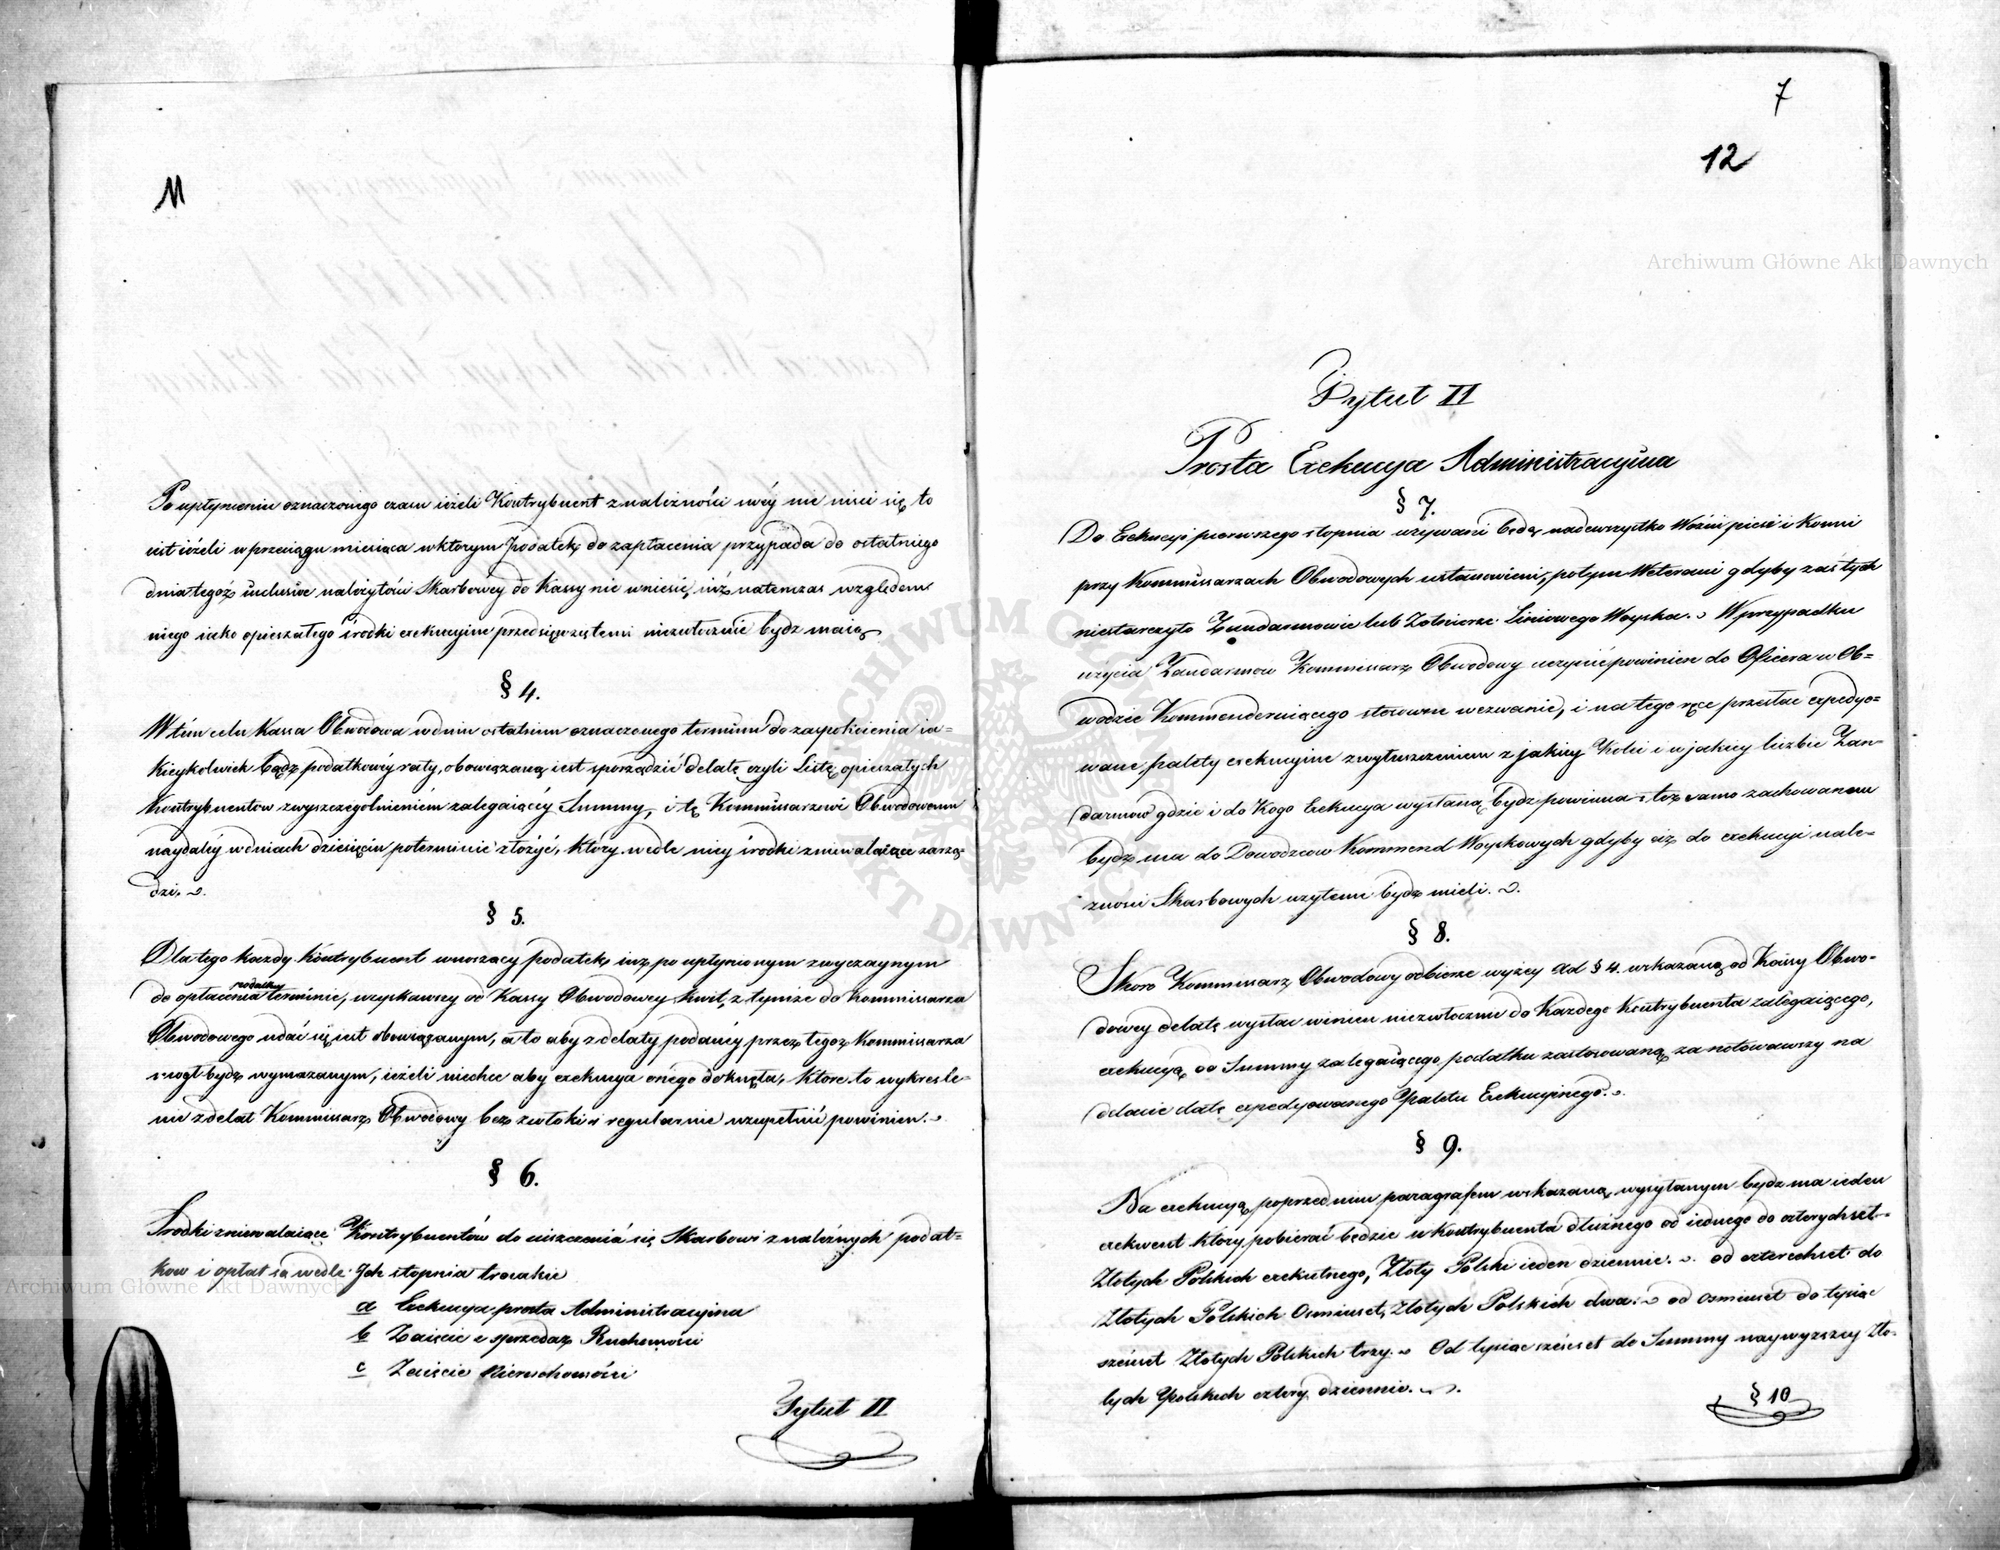 11
Po upłynieniu oznaczonego czasu ieżeli Kontrybuent z należności swéy nie uiści się, to
iest ieżeli w przeciągu miesiąca w którym Podatek do zapłacenia przypada do ostatniego
dnia tegoż inclusive należytości Skarbowey do Kassy nie wniesie, iuż natenczas względem
niego iako opieszałego środki exekucyine przedsięwziętemi niezwłocznie bydź maią
§ 4.
W tém celu Kassa Obwodowa w dniu ostatnim oznaczonego terminu do zaspokoienia ia-
kieykolwiek bądź podatkowéy raty, obowiązaną iest sporządzić delatę czyli Listę opieszałych
Kontrybuentów z wyszczególnieniem zalegaiącéy Summy, i tę Kommissarzowi Obwodowemu
naydaléy w dniach dziesięciu po terminie złożyć, który wedle niey środki zniewalaiące zarzą-
dzi.
§ 5.
Dla tego każdy Kontrybuent wnoszący podatek, iuż po upłynionym zwyczaynym
podatku
do opłacenia terminie, uzyskawszy od Kassy Obwodowey kwit, z tymże do Kommissarza
Obwodowego udać się iest obowiązanym, a to aby z delaty podanéy przez tegoż Kommissarza
mógł bydź wymazanym, ieżeli niechce aby exekucya onego dotknęła, które to wykreśle-
nie z delat Kommissarz Obwodowy bez zwłoki i regularnie uzupełnić powinien.
§ 6.
Srodki zniewalaiące Kontrybuentów do uiszczenia się Skarbowi z należnych podat-
ków i opłat są wedle Ich stopnia troiakie
a Exekucya prosta Administracyina
b Zaięcie i sprzedaż Ruchomości
c Zaięcie Nieruchomości
Tytuł II
7
12
Tytuł II
Prosta Exekucya Administracyina
§ 7.
Do Exekucyi pierwszego stopnia używani będą nadewszystko Woźni piesi i konni
przy Kommissarzach Obwodowych ustanowieni, potym Weterani gdyby zaś tych
niestarczyło Żandarmowie lub Żołnierze Liniowego Woyska. W przypadku
użycia Żandarmów Kommissarz Obwodowy uczynić powinien do Oficera w Ob-
wodzie Kommenderuiącego stosowne wezwanie, i na tego ręce przesłać expedyo-
wane palety exekucyine z wyłuszczeniem z jakiey Kolei i w jakiey liczbie Żan-
darmów gdzie i do Kogo Exekucya wysłaną bydź powinna toż samo zachowanem
bydź ma do Dowodzców Kommend Woyskowych gdyby ciż do exekucyi nale-
żności Skarbowych użytemi bydź mieli.
§ 8.
Skoro Kommissarz Obwodowy odbierze wyżey ad § 4. wskazaną od Kassy Obwo-
dowey delatę wysłać winien niezwłocznie do Każdego Kontrybuenta zalegaiącego,
exekucyą do Summy zalegaiącego podatku zastosowaną zanotowawszy na
delacie datę expedyowanego Paletu Exekucyinego.
§ 9.
Na exekucyą poprzednim paragrafem wskazaną, wysyłanym bydź ma ieden
exekwent który pobierać będzie u Kontrybuenta dłużnego od iednego do czterychset-
Złotych Polskich exekutnego, Złoty Polski ieden dziennie. od czterechset do
Złotych Polskich Osmiuset, Złotych Polskich dwa: od osmiuset do tysiąc
sześciuset Złotych Polskich trzy. Od tysiąc sześciuset do Summy naywyższey Zło-
tych Polskich cztery dziennie.
§ 10
Archiwum Główne Akt Dawnych
Archiwum Główne Akt Dawnych
ARCHIWUM GŁÓWNE AKT DAWNYCH